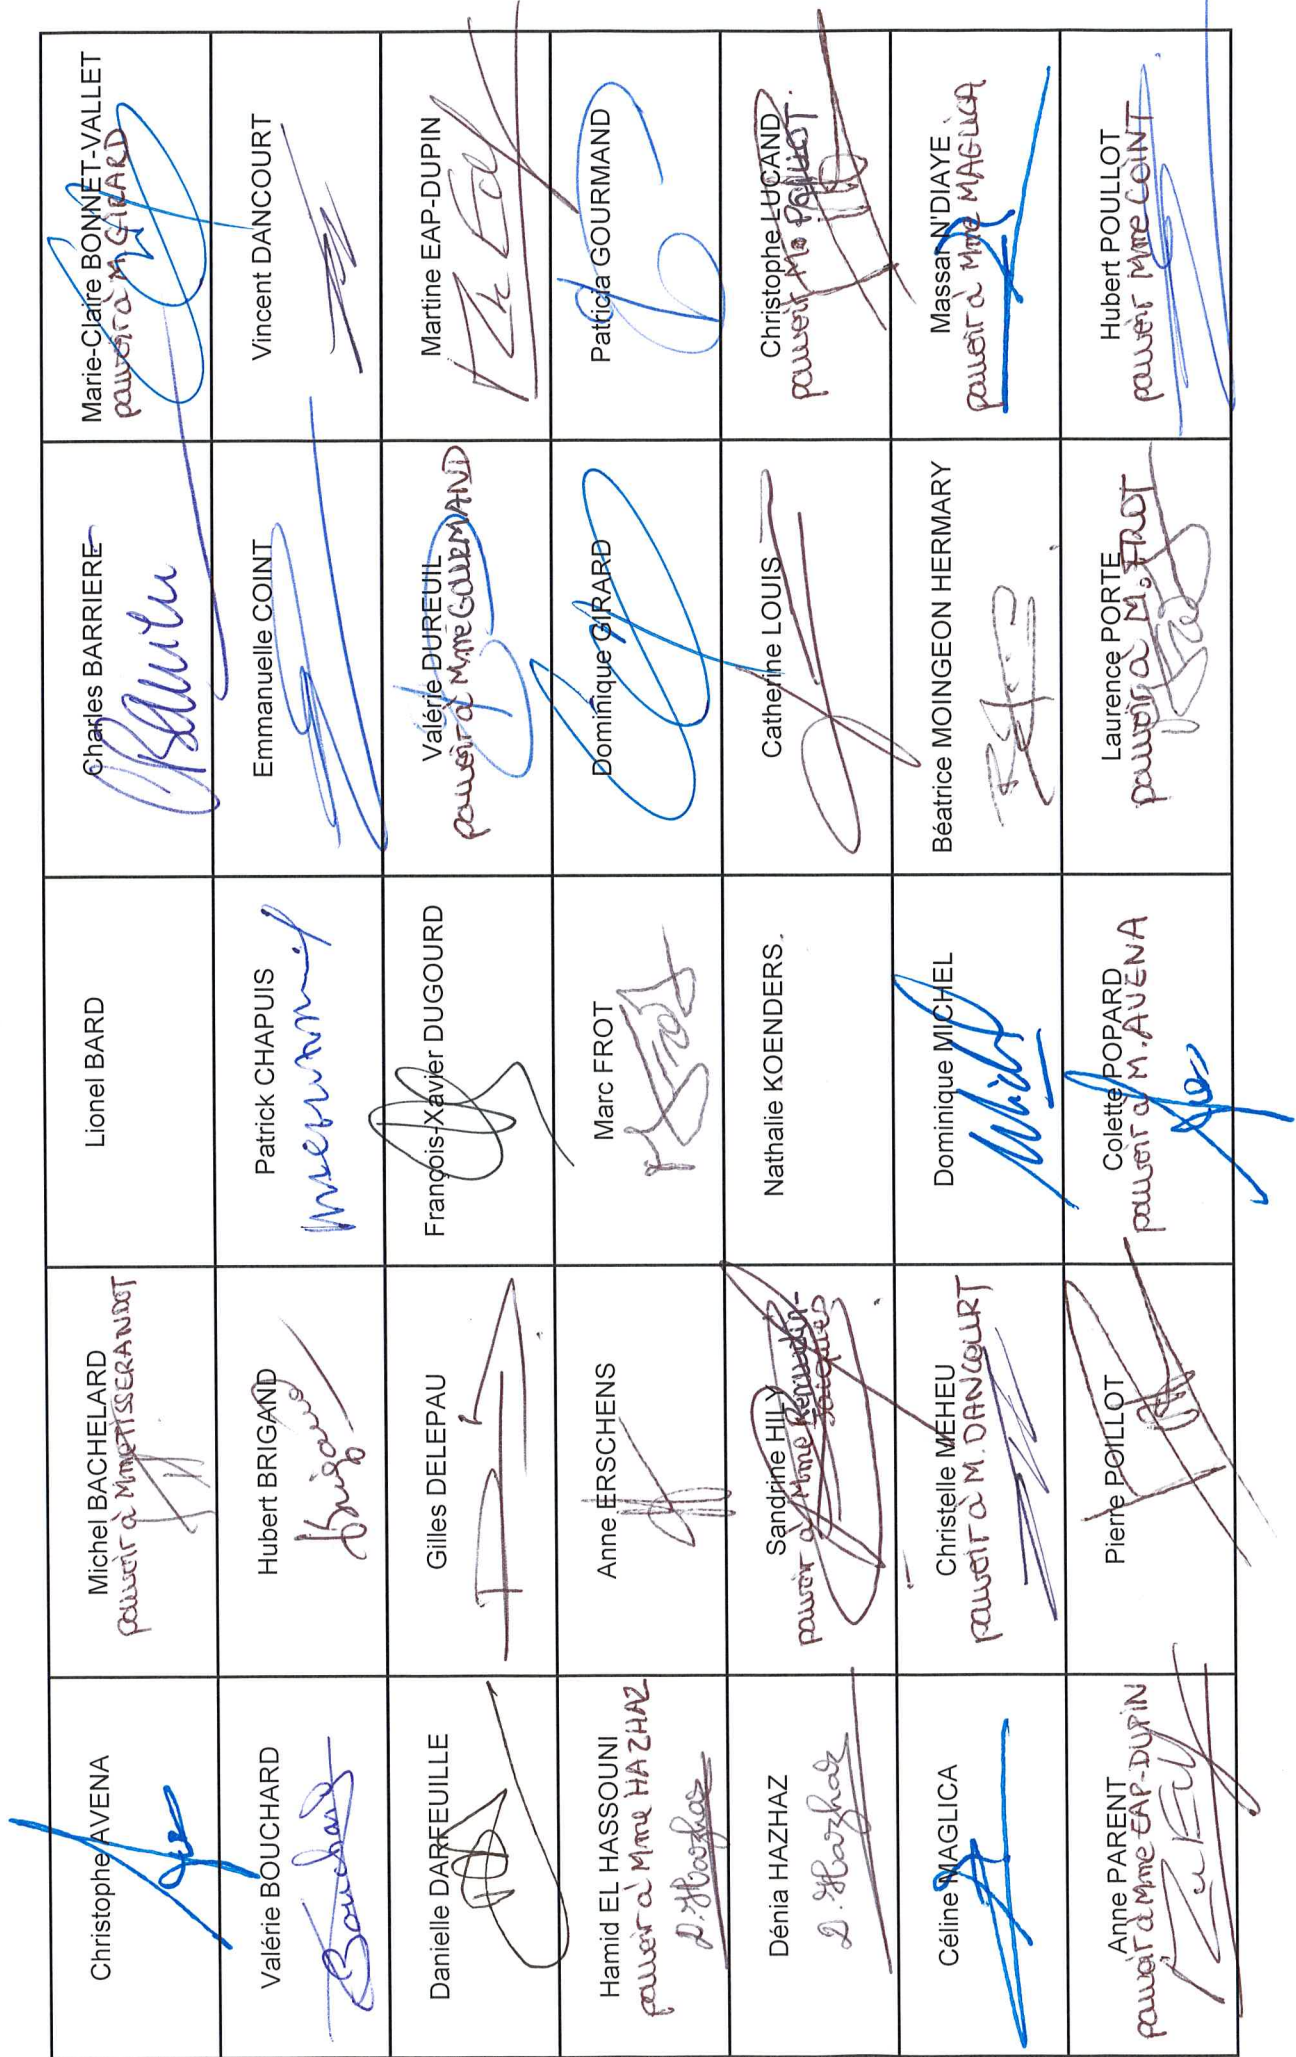 Christophe AVENA
Michel BACHELARD
pouvoir à Mme TISSERANDOT
Lionel BARD
Charles BARRIERE
Marie-Claire BONNET-VALLET
pouvoir à M. GIRARD
Valérie BOUCHARD
Bouchard
Hubert BRIGAND
Brigand
Patrick CHAPUIS
Emmanuelle COINT
Vincent DANCOURT
Danielle DARFEUILLE
Gilles DELEPAU
François-Xavier DUGOURD
Valérie DUREUIL
pouvoir à Mme GOURMAND
Martine EAP-DUPIN
Hamid EL HASSOUNI
pouvoir à Mme HAZHAZ
D. Hazhaz
Anne ERSCHENS
Marc FROT
Dominique GIRARD
Patricia GOURMAND
Dénia HAZHAZ
D. Hazhaz
Sandrine HILY
pouvoir à Mme
Nathalie KOENDERS.
Catherine LOUIS
Christophe LUCAND
pouvoir M. POILLOT.
Céline MAGLICA
Christelle MEHEU
pouvoir à M. DANCOURT
Dominique MICHEL
Béatrice MOINGEON HERMARY
Massar N'DIAYE
pouvoir à Mme MAGLICA
Anne PARENT
pouvoir à Mme EAP-DUPIN
Pierre POILLOT
Colette POPARD
pouvoir à M. AVENA
Laurence PORTE
pouvoir à M. FROT
Hubert POULLOT
pouvoir Mme COINT